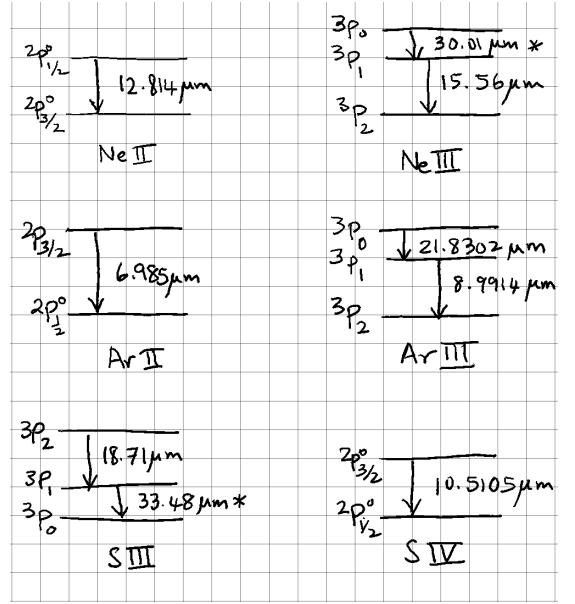 ²P°₁/₂
12.814 μm
²P°₃/₂
Ne II
³P₀
30.01 μm *
³P₁
15.56 μm
³P₂
Ne III
²P₃/₂
6.985 μm
²P°₁/₂
Ar II
³P₀
21.8302 μm
³P₁
8.9914 μm
³P₂
Ar III
³P₂
18.71 μm
³P₁
33.48 μm *
³P₀
S III
²P°₃/₂
10.5105 μm
²P°₁/₂
S IV